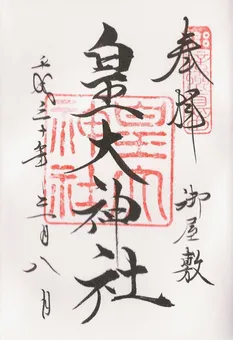 奉拝
御屋敷
皇大神社
平成三十年三月八日
皇大
神社